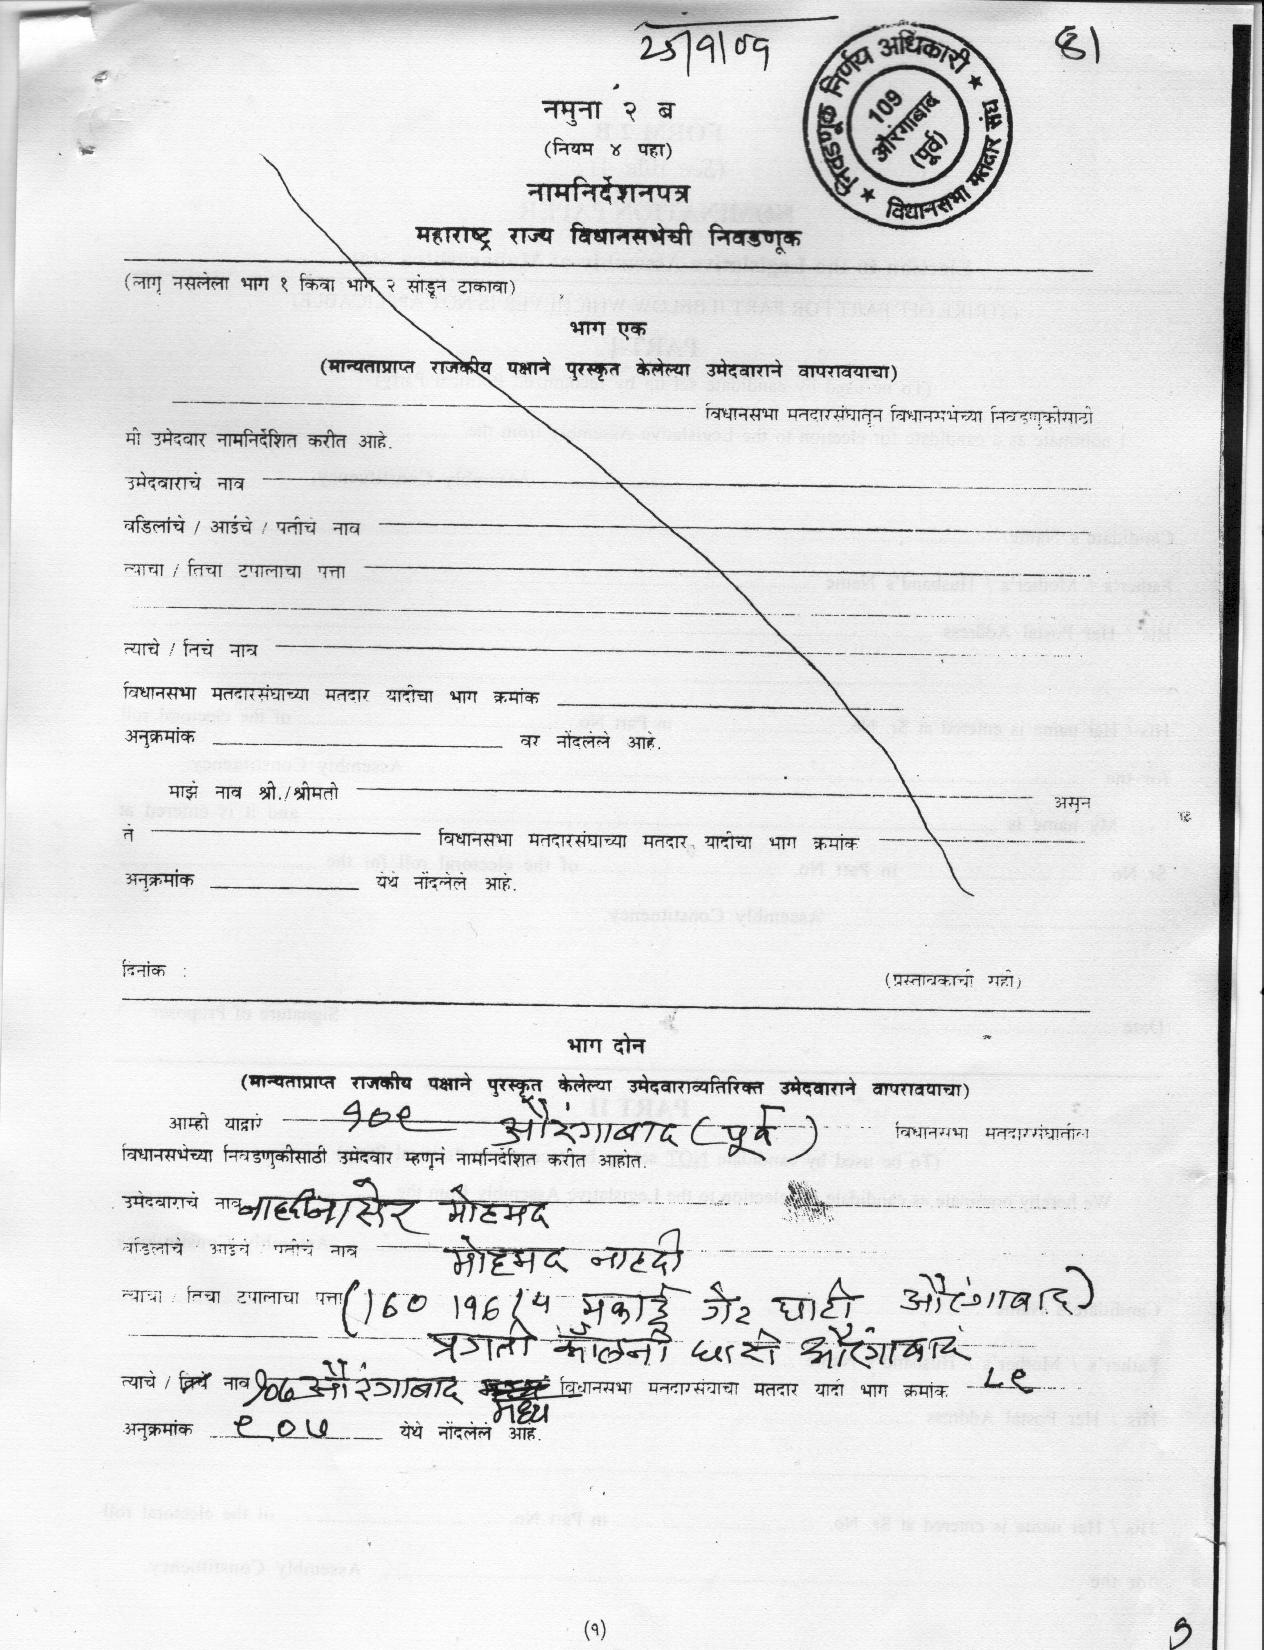 25/9/09
नमुना २ ब
(नियम ४ पहा)
नामनिर्देशनपत्र
महाराष्ट्र राज्य विधानसभेची निवडणूक
निवडणूक निर्णय अधिकारी
109
औरंगाबाद
(पूर्व)
विधानसभा मतदार संघ
(लागू नसलेला भाग १ किंवा भाग २ सोडून टाकावा)
भाग एक
(मान्यताप्राप्त राजकीय पक्षाने पुरस्कृत केलेल्या उमेदवाराने वापरावयाचा)
विधानसभा मतदारसंघातून विधानसभेच्या निवडणुकीसाठी
मी उमेदवार नामनिर्देशित करीत आहे.
उमेदवाराचे नाव
वडिलांचे / आईचे / पतीचे नाव
त्याचा / तिचा टपालाचा पत्ता
त्याचे / तिचे नाव
विधानसभा मतदारसंघाच्या मतदार यादीचा भाग क्रमांक
अनुक्रमांक वर नोंदलेले आहे.
माझे नाव श्री./श्रीमती असून
ते विधानसभा मतदारसंघाच्या मतदार यादीचा भाग क्रमांक
अनुक्रमांक येथे नोंदलेले आहे.
दिनांक :
(प्रस्तावकाची सही)
भाग दोन
(मान्यताप्राप्त राजकीय पक्षाने पुरस्कृत केलेल्या उमेदवाराव्यतिरिक्त उमेदवाराने वापरावयाचा)
आम्ही याद्वारे १०९ औरंगाबाद (पूर्व) विधानसभा मतदारसंघातील
विधानसभेच्या निवडणुकीसाठी उमेदवार म्हणून नामनिर्देशित करीत आहोत.
उमेदवाराचे नाव नाहदी नासेर मोहमद
वडिलांचे आईचे पतीचे नाव मोहमद नाहदी
त्याचा / तिचा टपालाचा पत्ता ( मकाई गेट घाटी औरंगाबाद)
प्रगती कॉलनी घाटी औरंगाबाद
त्याचे / तिचे नाव १०७ औरंगाबाद मध्य विधानसभा मतदारसंघाचा मतदार यादी भाग क्रमांक ८९
अनुक्रमांक ९०७ येथे नोंदलेले आहे.
(१)